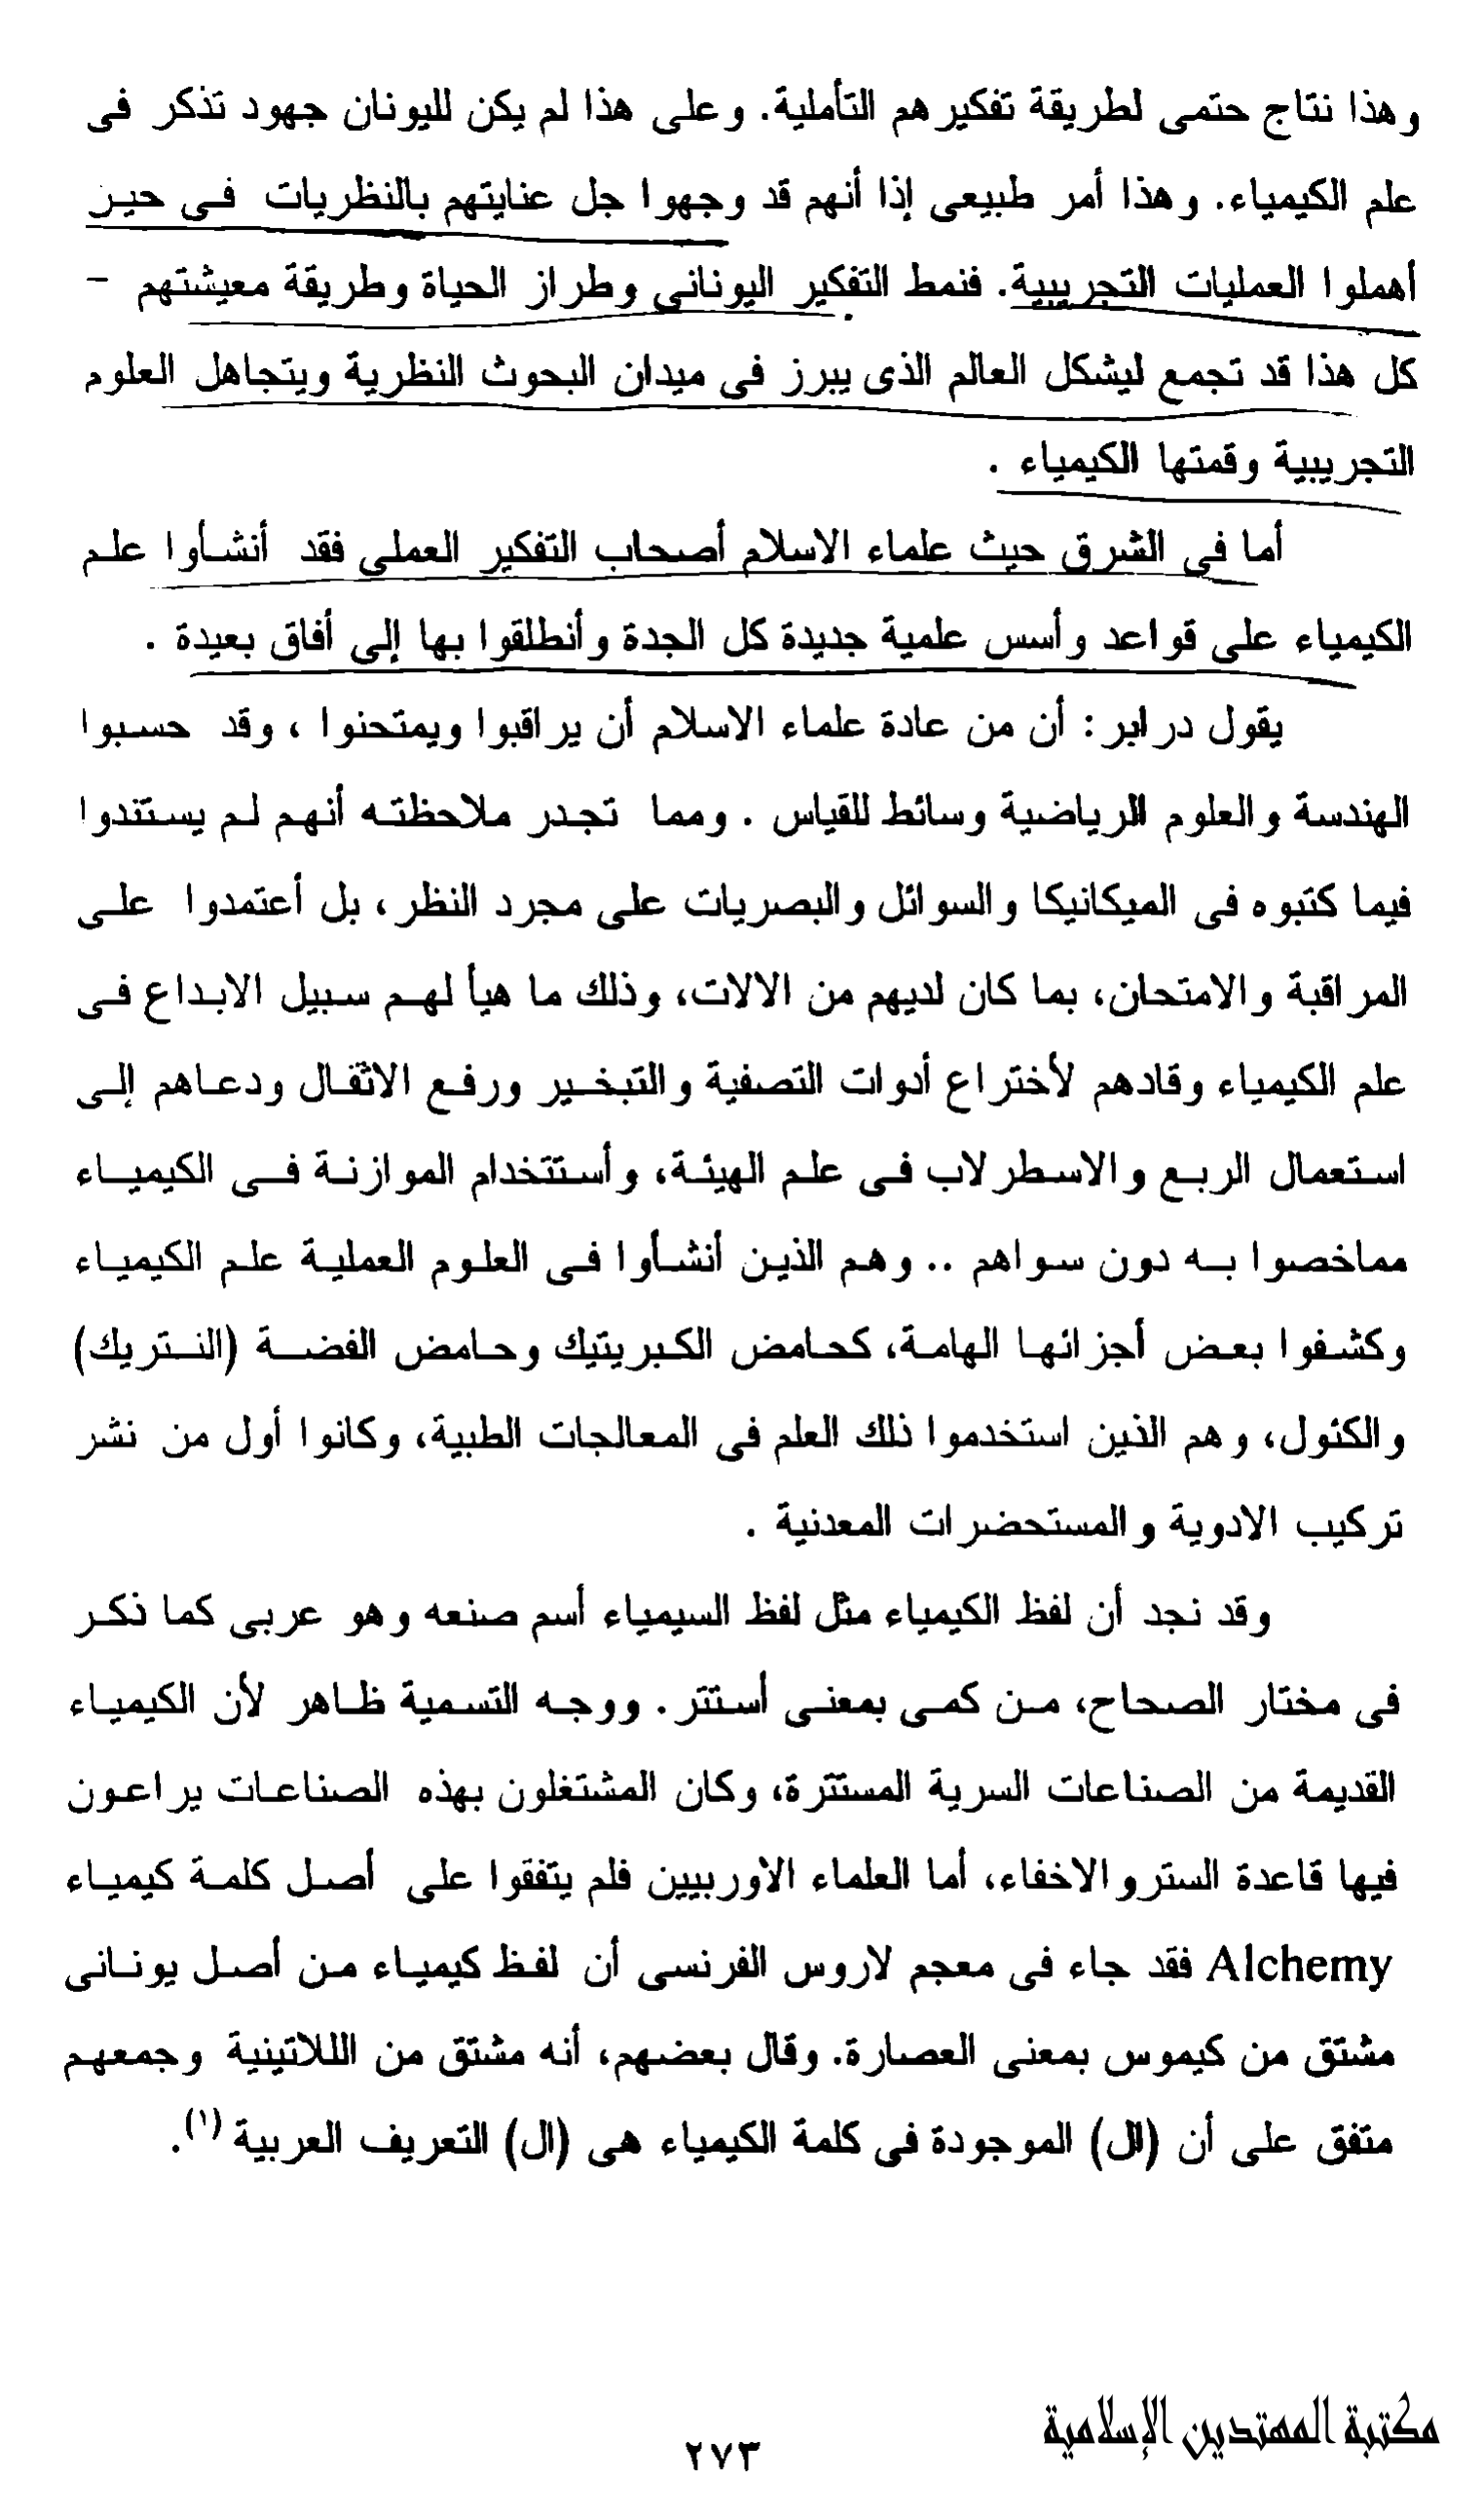 وهذا نتاج حتمى لطريقة تفكيرهم التأملية. وعلى هذا لم يكن لليونان جهود تذكر فى
علم الكيمياء. وهذا أمر طبيعى إذا أنهم قد وجهوا جل عنايتهم بالنظريات فى حين
أهملوا العمليات التجريبية. فنمط التفكير اليونانى وطراز الحياة وطريقة معيشتهم -
كل هذا قد تجمع ليشكل العالم الذى يبرز فى ميدان البحوث النظرية ويتجاهل العلوم
التجريبية وقمتها الكيمياء .
أما فى الشرق حيث علماء الاسلام أصحاب التفكير العملى فقد أنشأوا علم
الكيمياء على قواعد وأسس علمية جديدة كل الجدة وأنطلقوا بها إلى أفاق بعيدة .
يقول درابر : أن من عادة علماء الاسلام أن يراقبوا ويمتحنوا ، وقد حسبوا
الهندسة والعلوم الرياضية وسائط للقياس . ومما تجدر ملاحظته أنهم لم يستندوا
فيما كتبوه فى الميكانيكا والسوائل والبصريات على مجرد النظر، بل أعتمدوا على
المراقبة والامتحان، بما كان لديهم من الالات، وذلك ما هيأ لهم سبيل الابداع فى
علم الكيمياء وقادهم لأختراع أدوات التصفية والتبخير ورفع الاثقال ودعاهم إلى
استعمال الربع والاسطرلاب فى علم الهيئة، وأستتخدام الموازنة فى الكيمياء
مماخصوا به دون سواهم .. وهم الذين أنشأوا فى العلوم العملية علم الكيمياء
وكشفوا بعض أجزائها الهامة، كحامض الكبريتيك وحامض الفضة (النتريك)
والكئول، وهم الذين استخدموا ذلك العلم فى المعالجات الطبية، وكانوا أول من نشر
تركيب الادوية والمستحضرات المعدنية .
وقد نجد أن لفظ الكيمياء مثل لفظ السيمياء أسم صنعه وهو عربى كما ذكر
فى مختار الصحاح، من كمى بمعنى أستتر. ووجه التسمية ظاهر لأن الكيمياء
القديمة من الصناعات السرية المستترة، وكان المشتغلون بهذه الصناعات يراعون
فيها قاعدة الستر والاخفاء، أما العلماء الاوربيين فلم يتفقوا على أصل كلمة كيمياء
Alchemy فقد جاء فى معجم لاروس الفرنسى أن لفظ كيمياء من أصل يونانى
مشتق من كيموس بمعنى العصارة. وقال بعضهم، أنه مشتق من اللاتينية وجمعهم
متفق على أن (ال) الموجودة فى كلمة الكيمياء هى (ال) التعريف العربية (١).
مكتبة المهتدين الإسلامية
٢٧٣